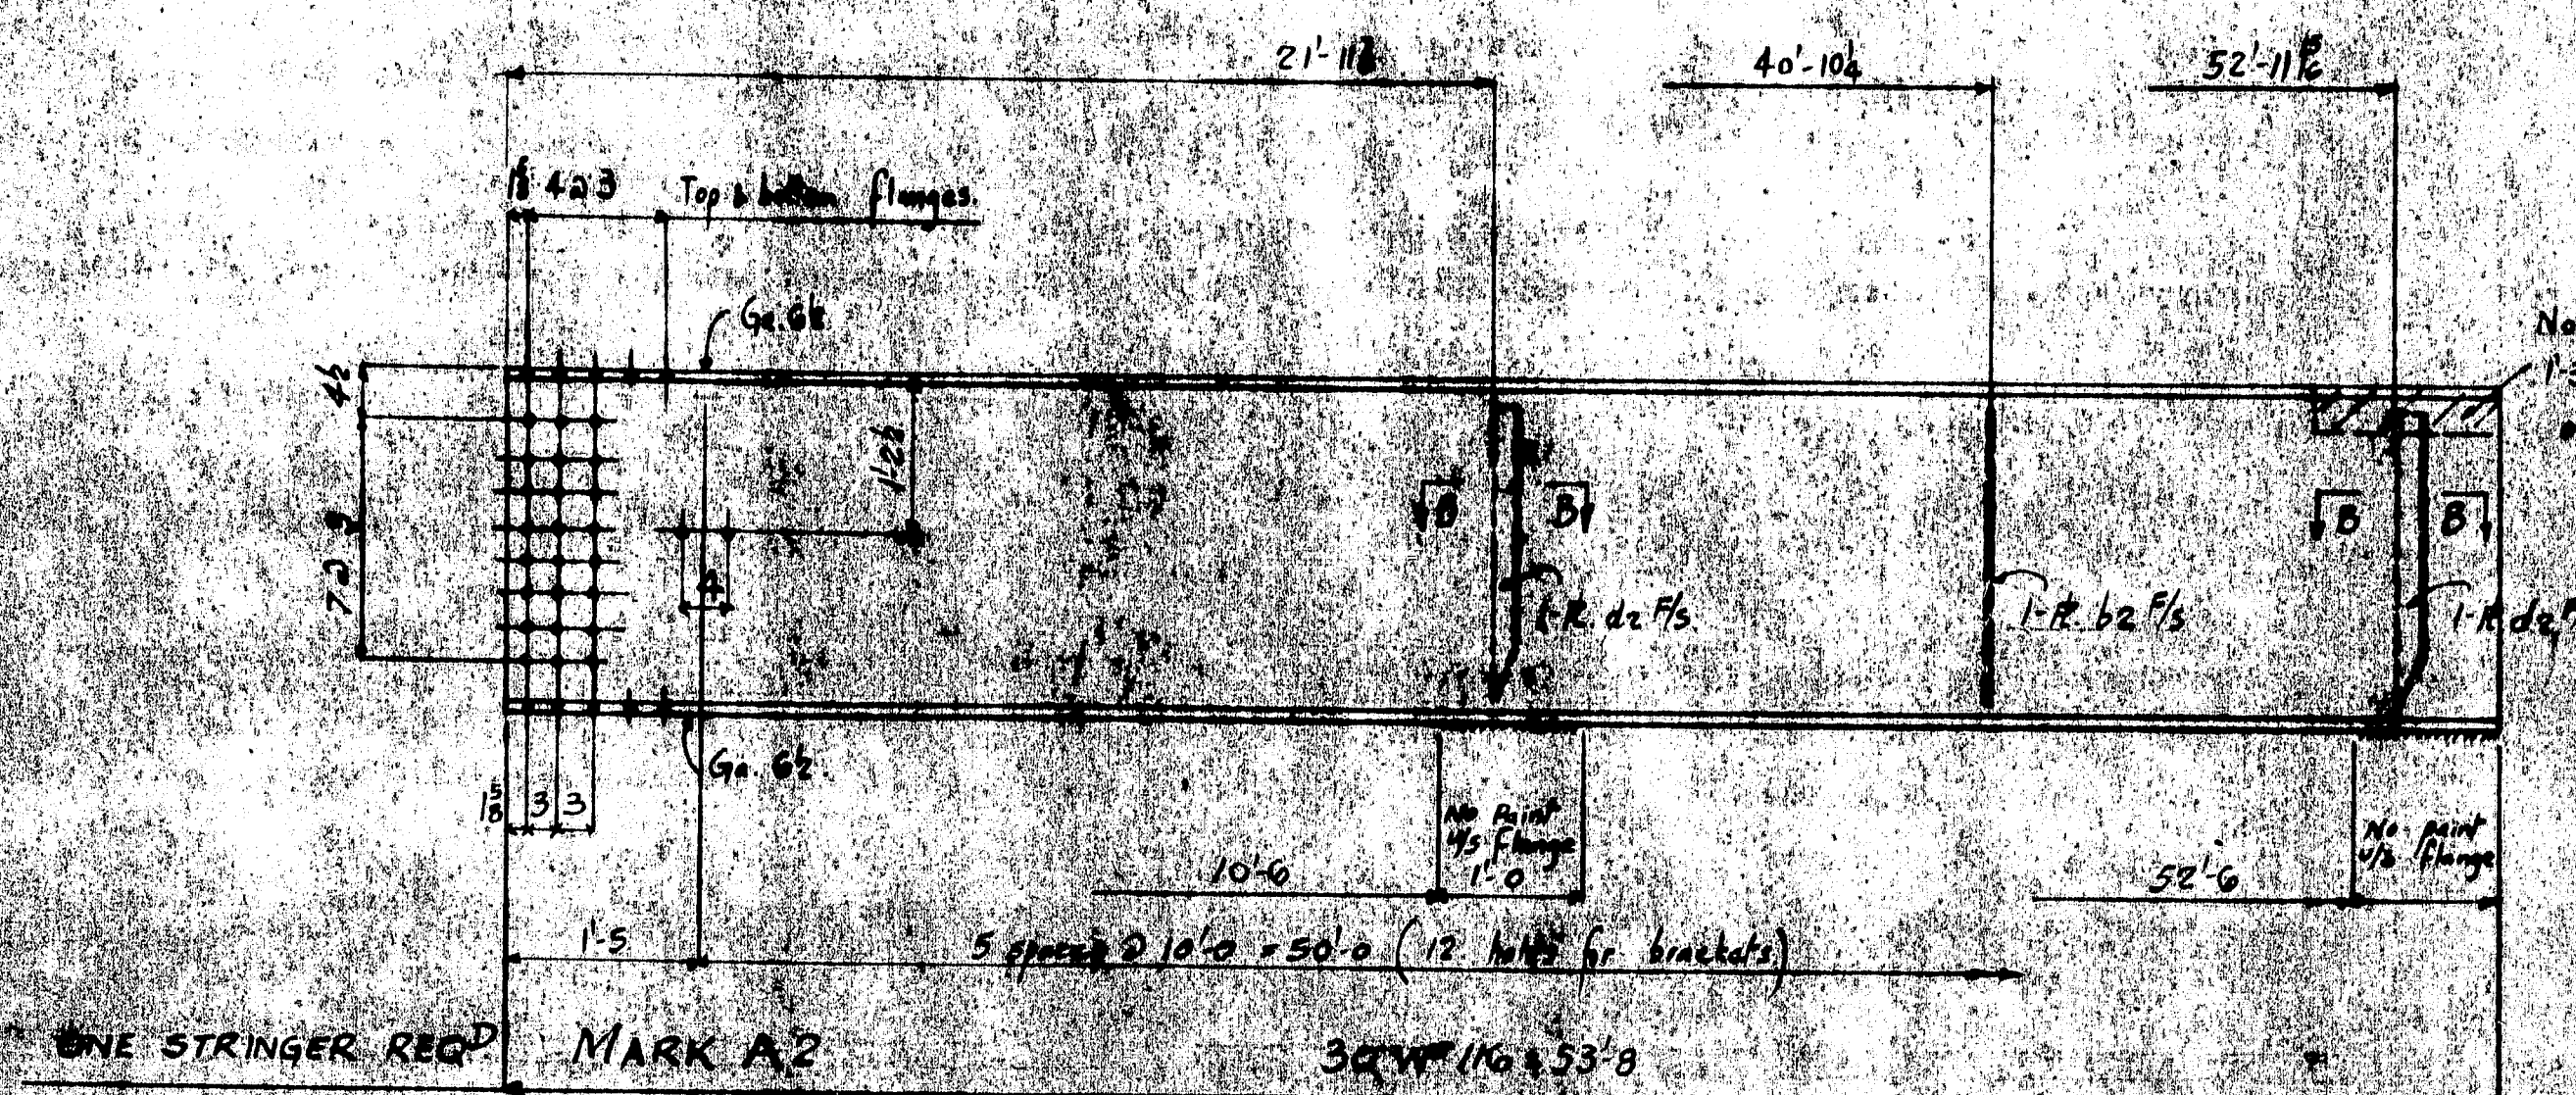 21'-11
40'-10 1/4
52'-11
1 5/8 4 @ 3 Top & bottom flanges.
Ga. 6 1/2
No
4 1/2
1'-2 1/2
7 @ 3
B B
B B
4
1-PL. d2 F/s.
1-PL. b2 F/s
1-PL d2
Ga. 6 1/2
1 5/8 3 3
No Paint
U/s Flange
1'-0
10'-6
No paint
U/s flange
52'-6
1'-5
5 spaces @ 10'-0 = 50'-0 (12 holes for brackets)
ONE STRINGER REQ'D MARK A2
WF 116 x 53'-8